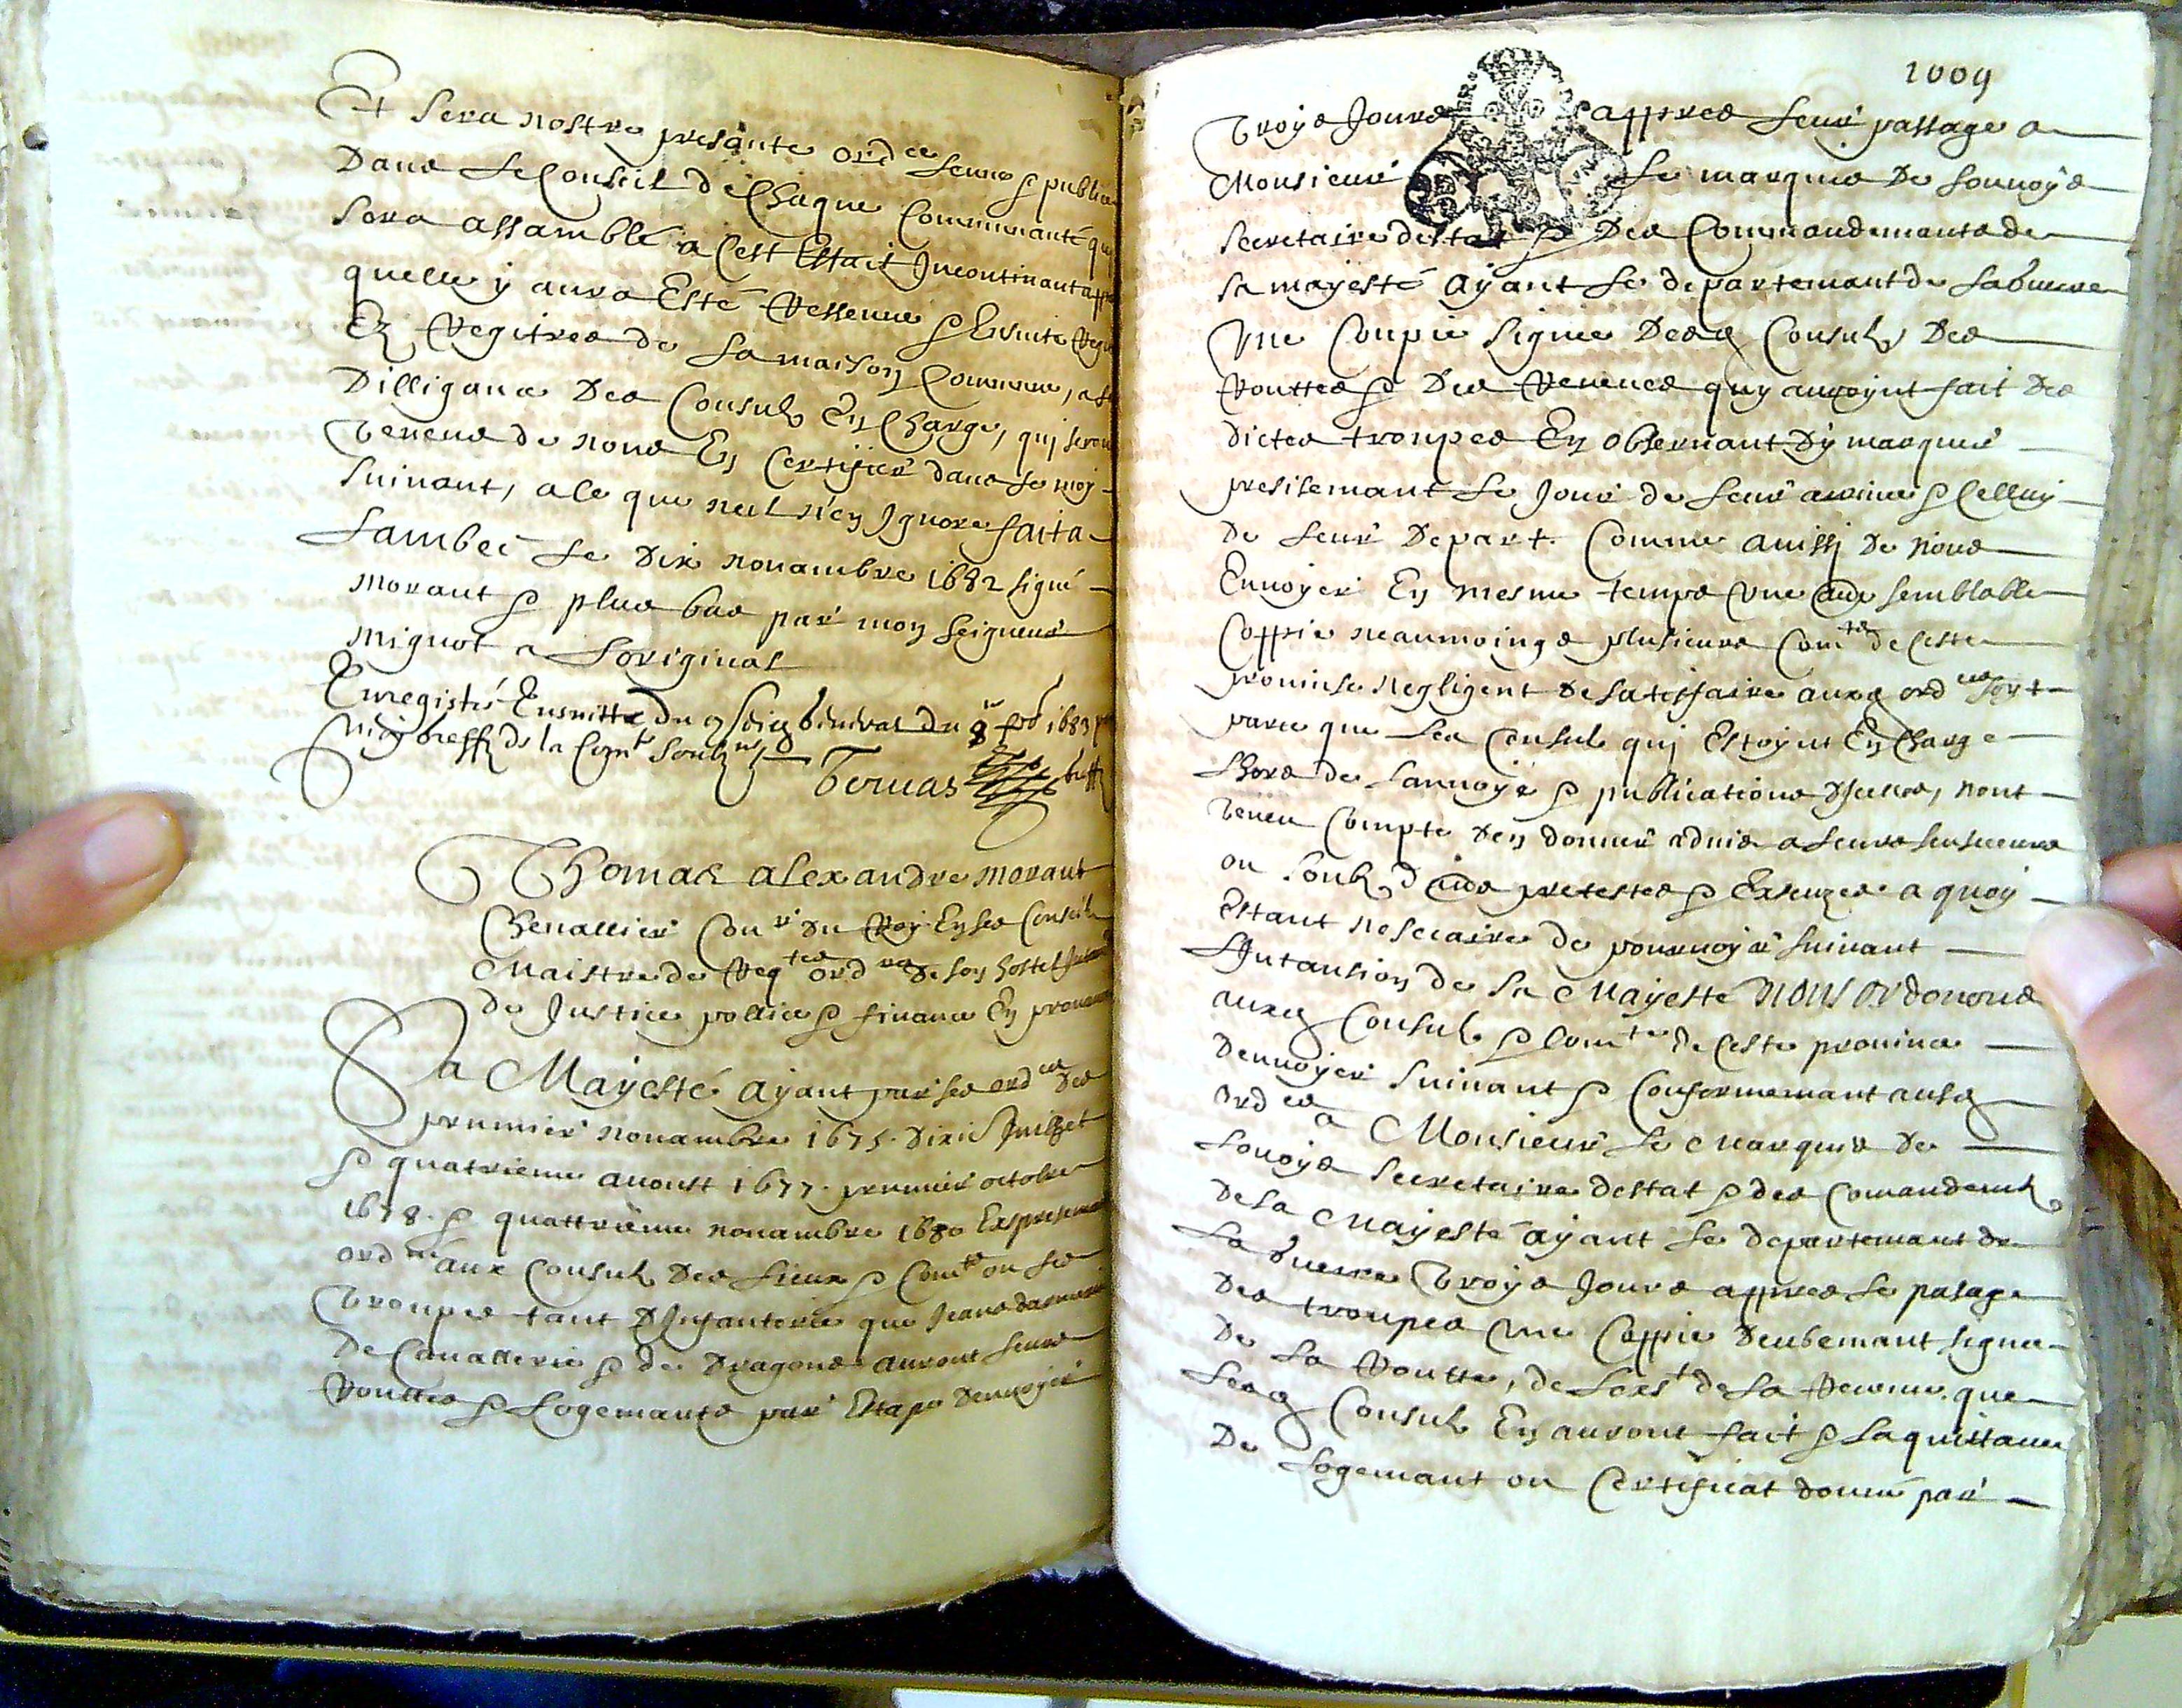 Et sera nostre presante ord^ce leue & publiee
Dans le Conseil de Chaque Communauté qui
sera assamblé a cest Effait Incontinant apr
quelle y aura Esté Ressene & Ensuite
Ez Registres de la maison Commune, a la
Dilligance des Consuls En Charge, qui seron
Tenens de nous En Certifier dans le moy
suivant, a ce que nul n'en Ignore fait a
Lambec le Dix novambre 1682 signé
Morant & plus bas par mon seigneur
Mignot a Loriginal
Enregistré Ensuitte du Conseil General du 8 1683
moy greff^r de la Com^té soubz^né
Geruas greff^r
Thomas alexandre morant
Chevallier Con^er du Roy En ses Conseils
Maistre des Req^tes ord^res de son hostel
de Justice pollice & finance En provance
Sa Mayesté ayant par ses ord^ces des
prumier novambre 1675. Juillet
& quatrieme aoust 1677. prumier octobre
1678. & quattrieme novambre 1680 Expresemant
ord^né aux Consuls des Lieux & Com^tés ou les
Troupes tant D'Infanterie que Jeans darmes
De Cavallerie & de Dragons auront leurs
Routtes & Logemants par Etape Denvoyer
1009
Troys Jours appres leur passage a
Monsieur Le marquis De Louvoys
Secretaire destat & Des Commandemants de
sa mayesté ayant le departemant de la Guerre
Une Coupie signée Desd Consuls Des
Routtes & Des Reveues quy auroynt fait des
dictes troupes En observant D'y marquer
presisemant le Jour de leur arrivée & Celluy
De leur Depart. Comme aussi De nous
Envoyer En mesme temps Une semblable
Coppie neaumoings plusieurs Com^tés de Ceste
province negligent De satisfaire auxd ord^ces soyt
parce que Les Consuls qui Estoynt En Charge
Lhors de Lanvoye & publications D'Icelles, nont
Teneu Compte Den donner advis a leurs sucsesseurs
ou soubz D pretestes & Excuzes a quoy
Estant nessesaire de pourvoyr suivant
L'Intansion de Sa Mayesté NOUS Ordonons
auxd Consuls & Com^tés de Ceste province
Denvoyer suivant & Conformemant ausd
ord^ces a Monsieur Le Marquis De
Louvoys Secretaire destat & des Comandem^ts
De sa Mayesté ayant le departemant de
La Guerre Troys Jours appres le pasage
Des troupes Une Coppie Deubemant signée
De la Routte, de Lext^t de la Reveue que
Lesd Consuls En auront fait & La quittance
De Logemant ou Certificat donné par